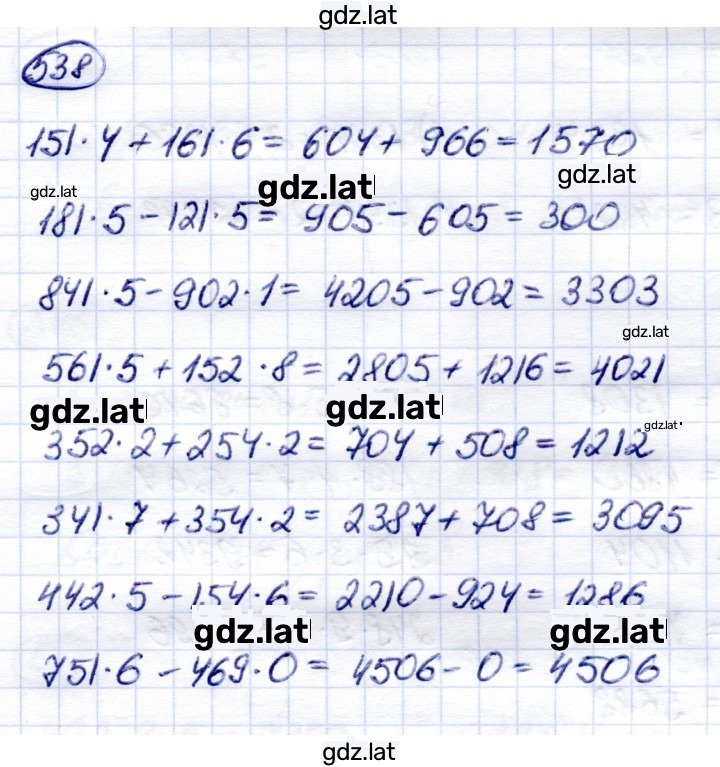 gdz.lat
538
151·4+161·6= 604+ 966=1570
gdz.lat gdz.lat gdz.lat
181·5-121·5= 905-605=300
841·5-902·1= 4205-902=3303
gdz.lat
561·5+152·8= 2805+1216=4021
gdz.lat gdz.lat gdz.lat
352·2+254·2= 704+508=1212
341·7+354·2= 2387+708=3095
442·5-154·6= 2210-924=1286
gdz.lat gdz.lat
751·6-469·0= 4506-0=4506
gdz.lat